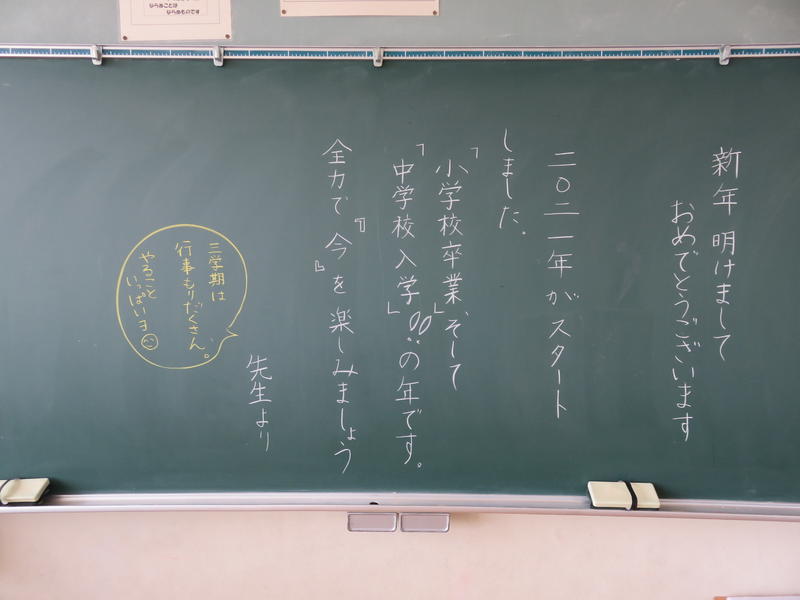 ならぬことは
ならぬものです
新年 明けまして
おめでとうございます
二〇二一年がスタート
しました。
「小学校卒業」そして
「中学校入学」!!の年です。
全力で『今』を楽しみましょう
先生より
三学期は
行事もりだくさん。
やること
いっぱいヨ